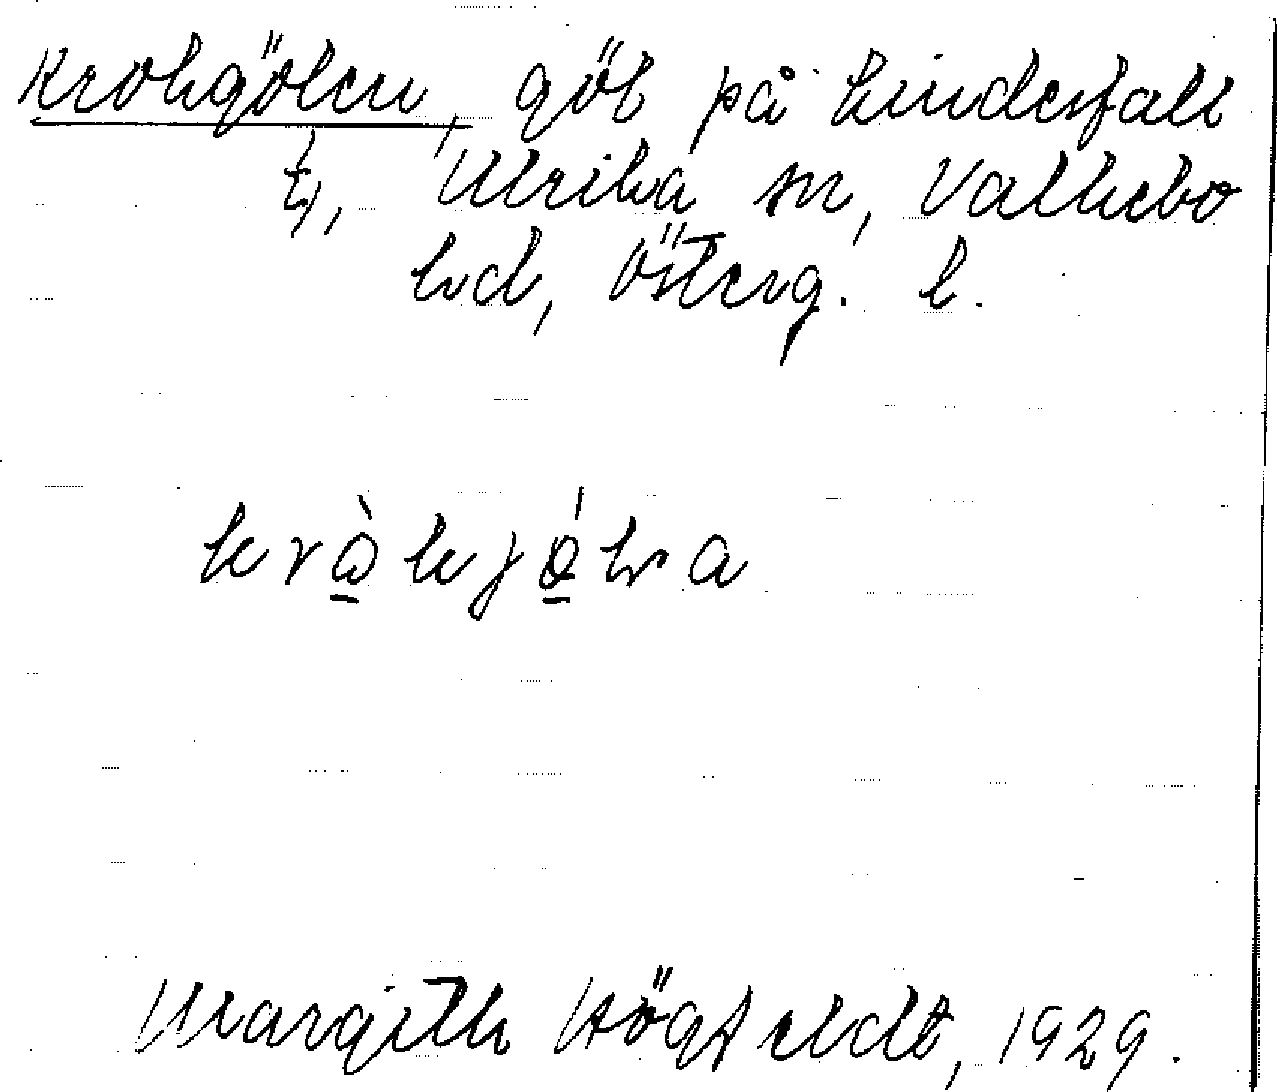 Krokgölen, göl på Lindesfall
Ulrika sn, Valkebo
hd, Österg. l.
Margith Högfeldt, 1929.